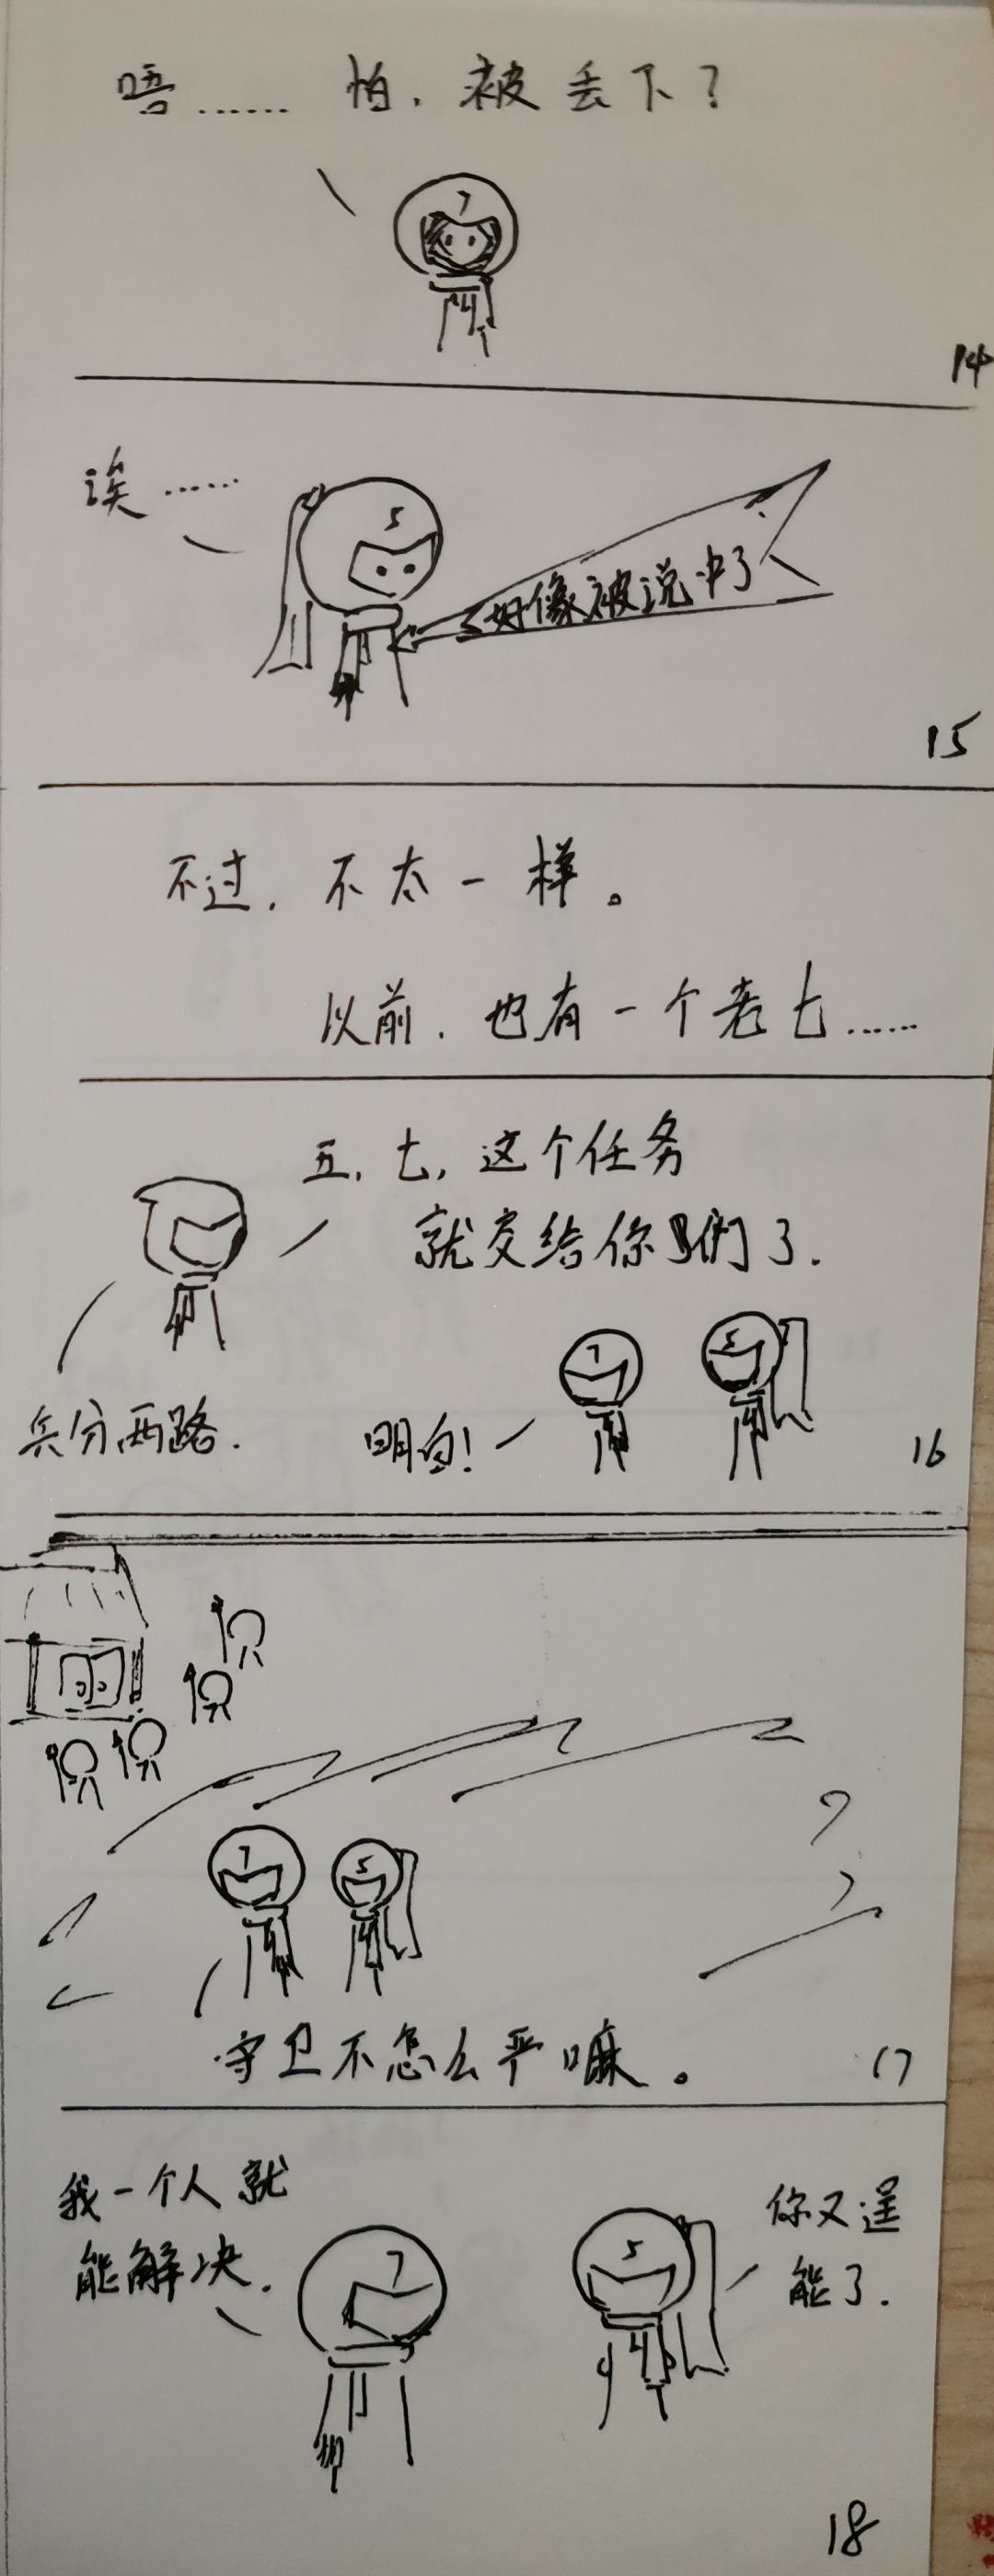 唔…… 怕,被丢下?
7
14
诶……
5
好像被说中了
15
不过,不太一样。
以前,也有一个老七……
五,七,这个任务
就交给你们了.
兵分两路.
明白!
7
5
16
7
5
守卫不怎么严嘛。
17
我一个人就
能解决.
7
5
你又逞
能了.
18